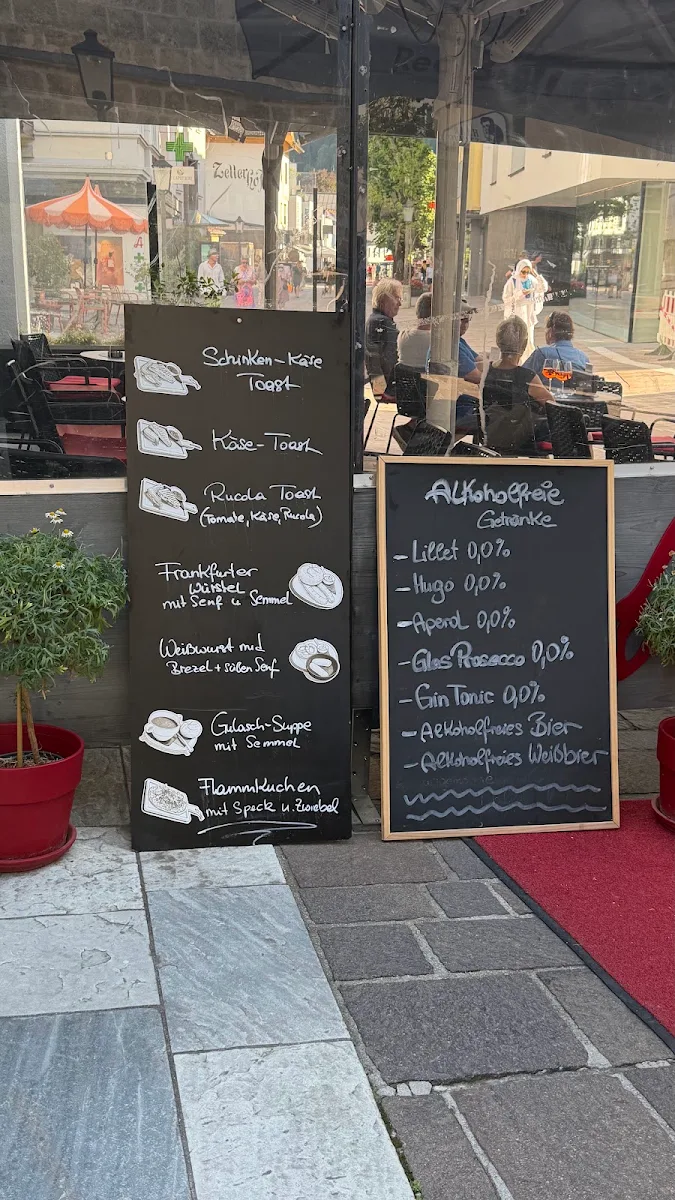 Zellerhof
Schinken-Käse
Toast
Käse-Toast
Rucola Toast
(Tomate, Käse, Rucola)
Frankfurter
Würstel
mit Senf u Semmel
Weißwurst mit
Brezel + süßen Senf
Gulasch-Suppe
mit Semmel
Flammkuchen
mit Speck u. Zwiebel
Alkoholfreie
Getränke
- Lillet 0,0%
- Hugo 0,0%
- Aperol 0,0%
- Glas Prosecco 0,0%
- Gin Tonic 0,0%
- Alkoholfreies Bier
- Alkoholfreies Weißbier